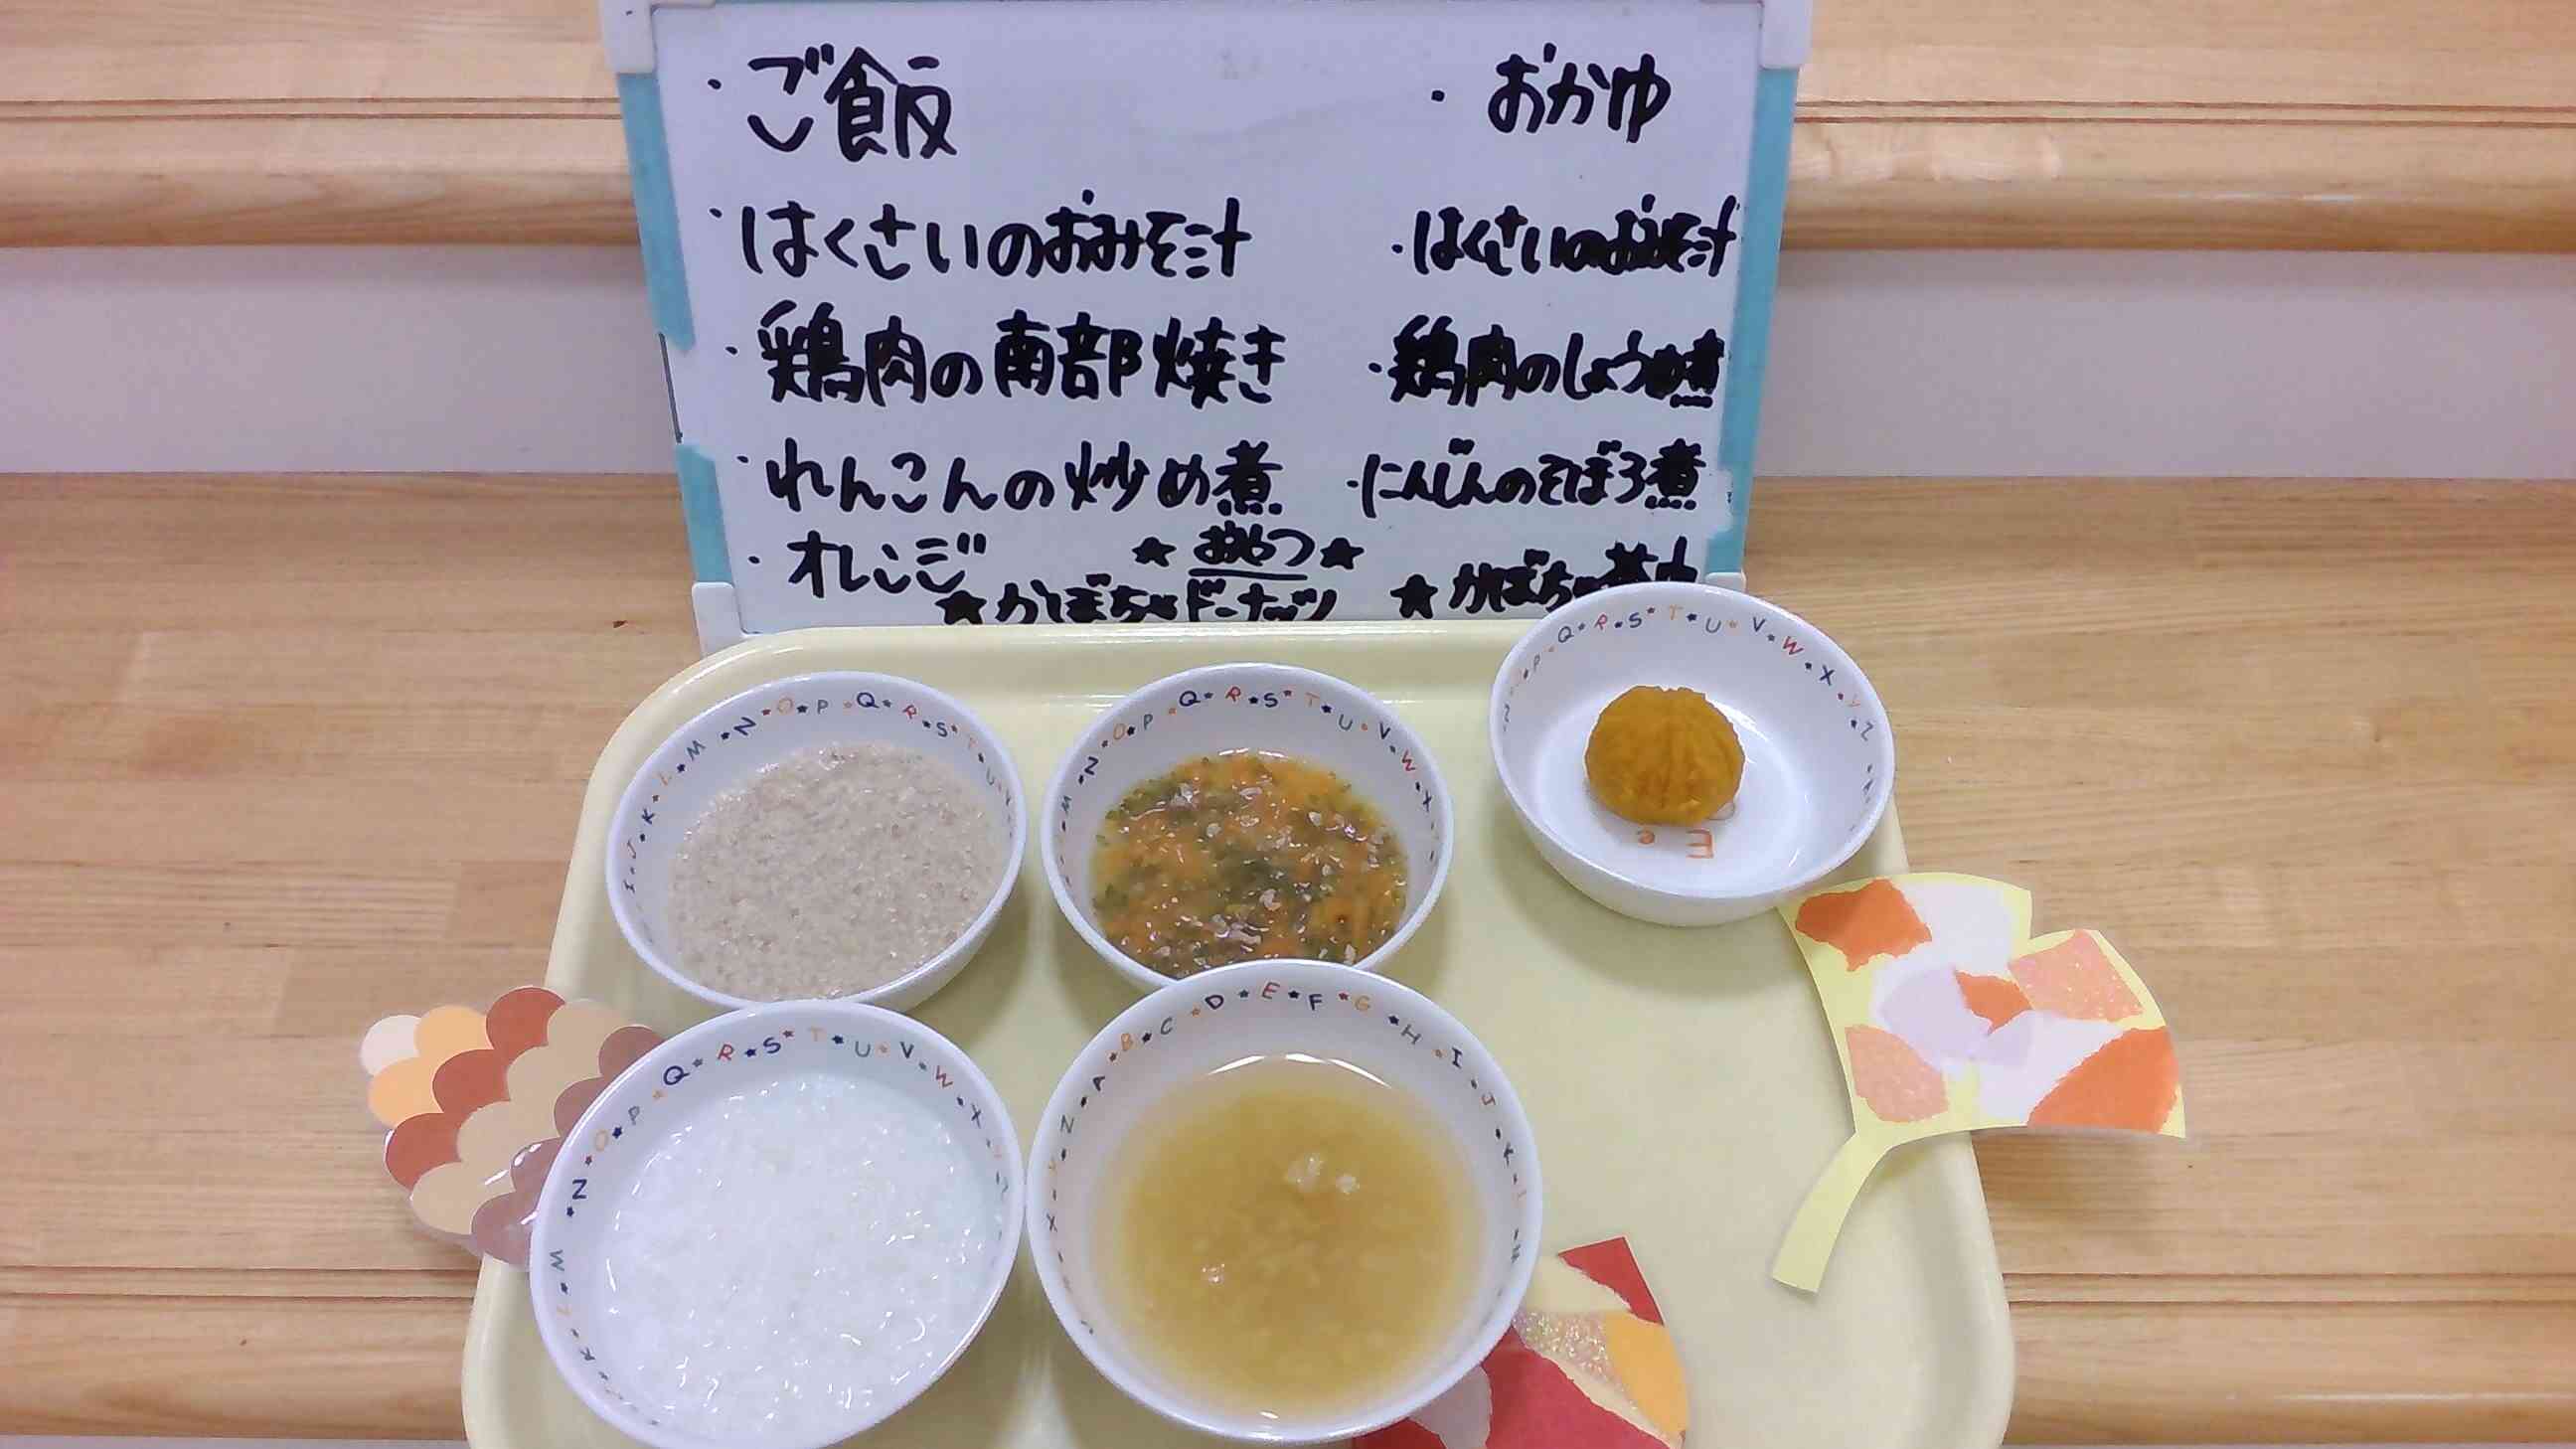 ・ご飯
・はくさいのおみそ汁
・鶏肉の南部焼き
・れんこんの炒め煮
・オレンジ
★おやつ★
★かぼちゃドーナッツ
・おかゆ
・はくさいのおみそ汁
・鶏肉のしょうゆ煮
・にんじんのそぼろ煮
★かぼちゃ茶巾
I J K L M N O P Q R S T U V
M N O P Q R S T U V W X
N O P Q R S T U V W X Y Z
E e
K L M N O P Q R S T U V W X Y
X Y Z A B C D E F G H I J K L M